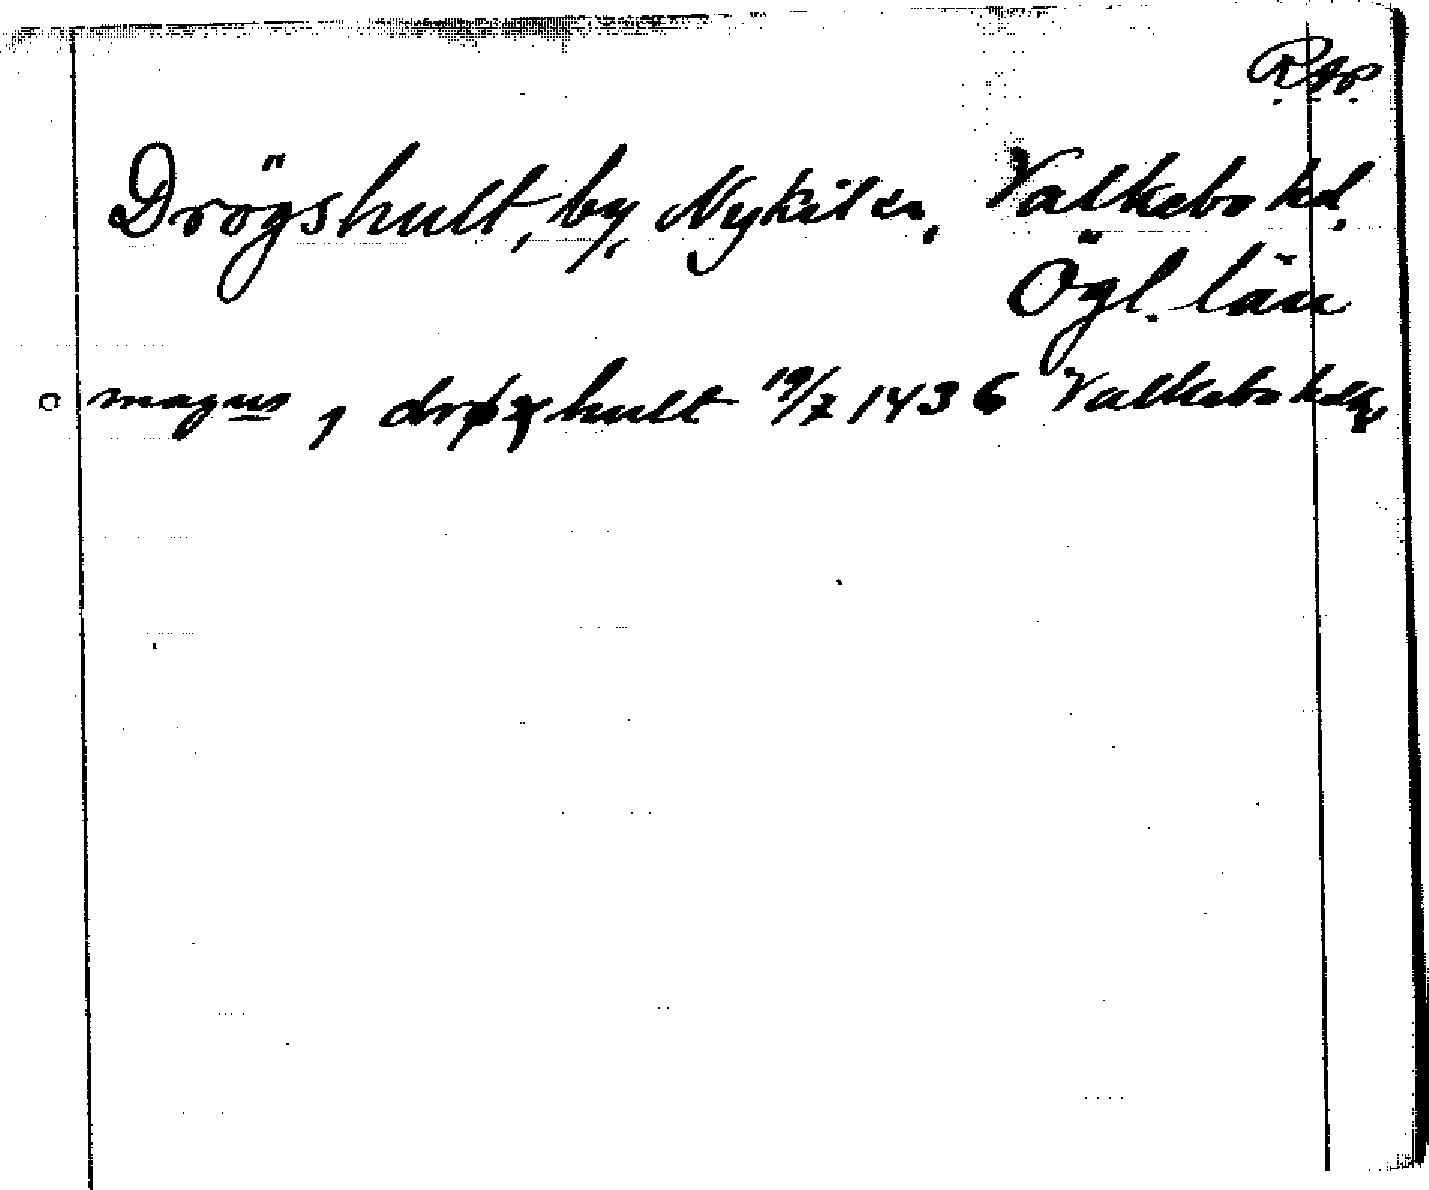 Drögshult, by, Nykil sn, Valkebo hd.
Ögl. län
magnus j drøxhult 19/7 1436 Valkebo